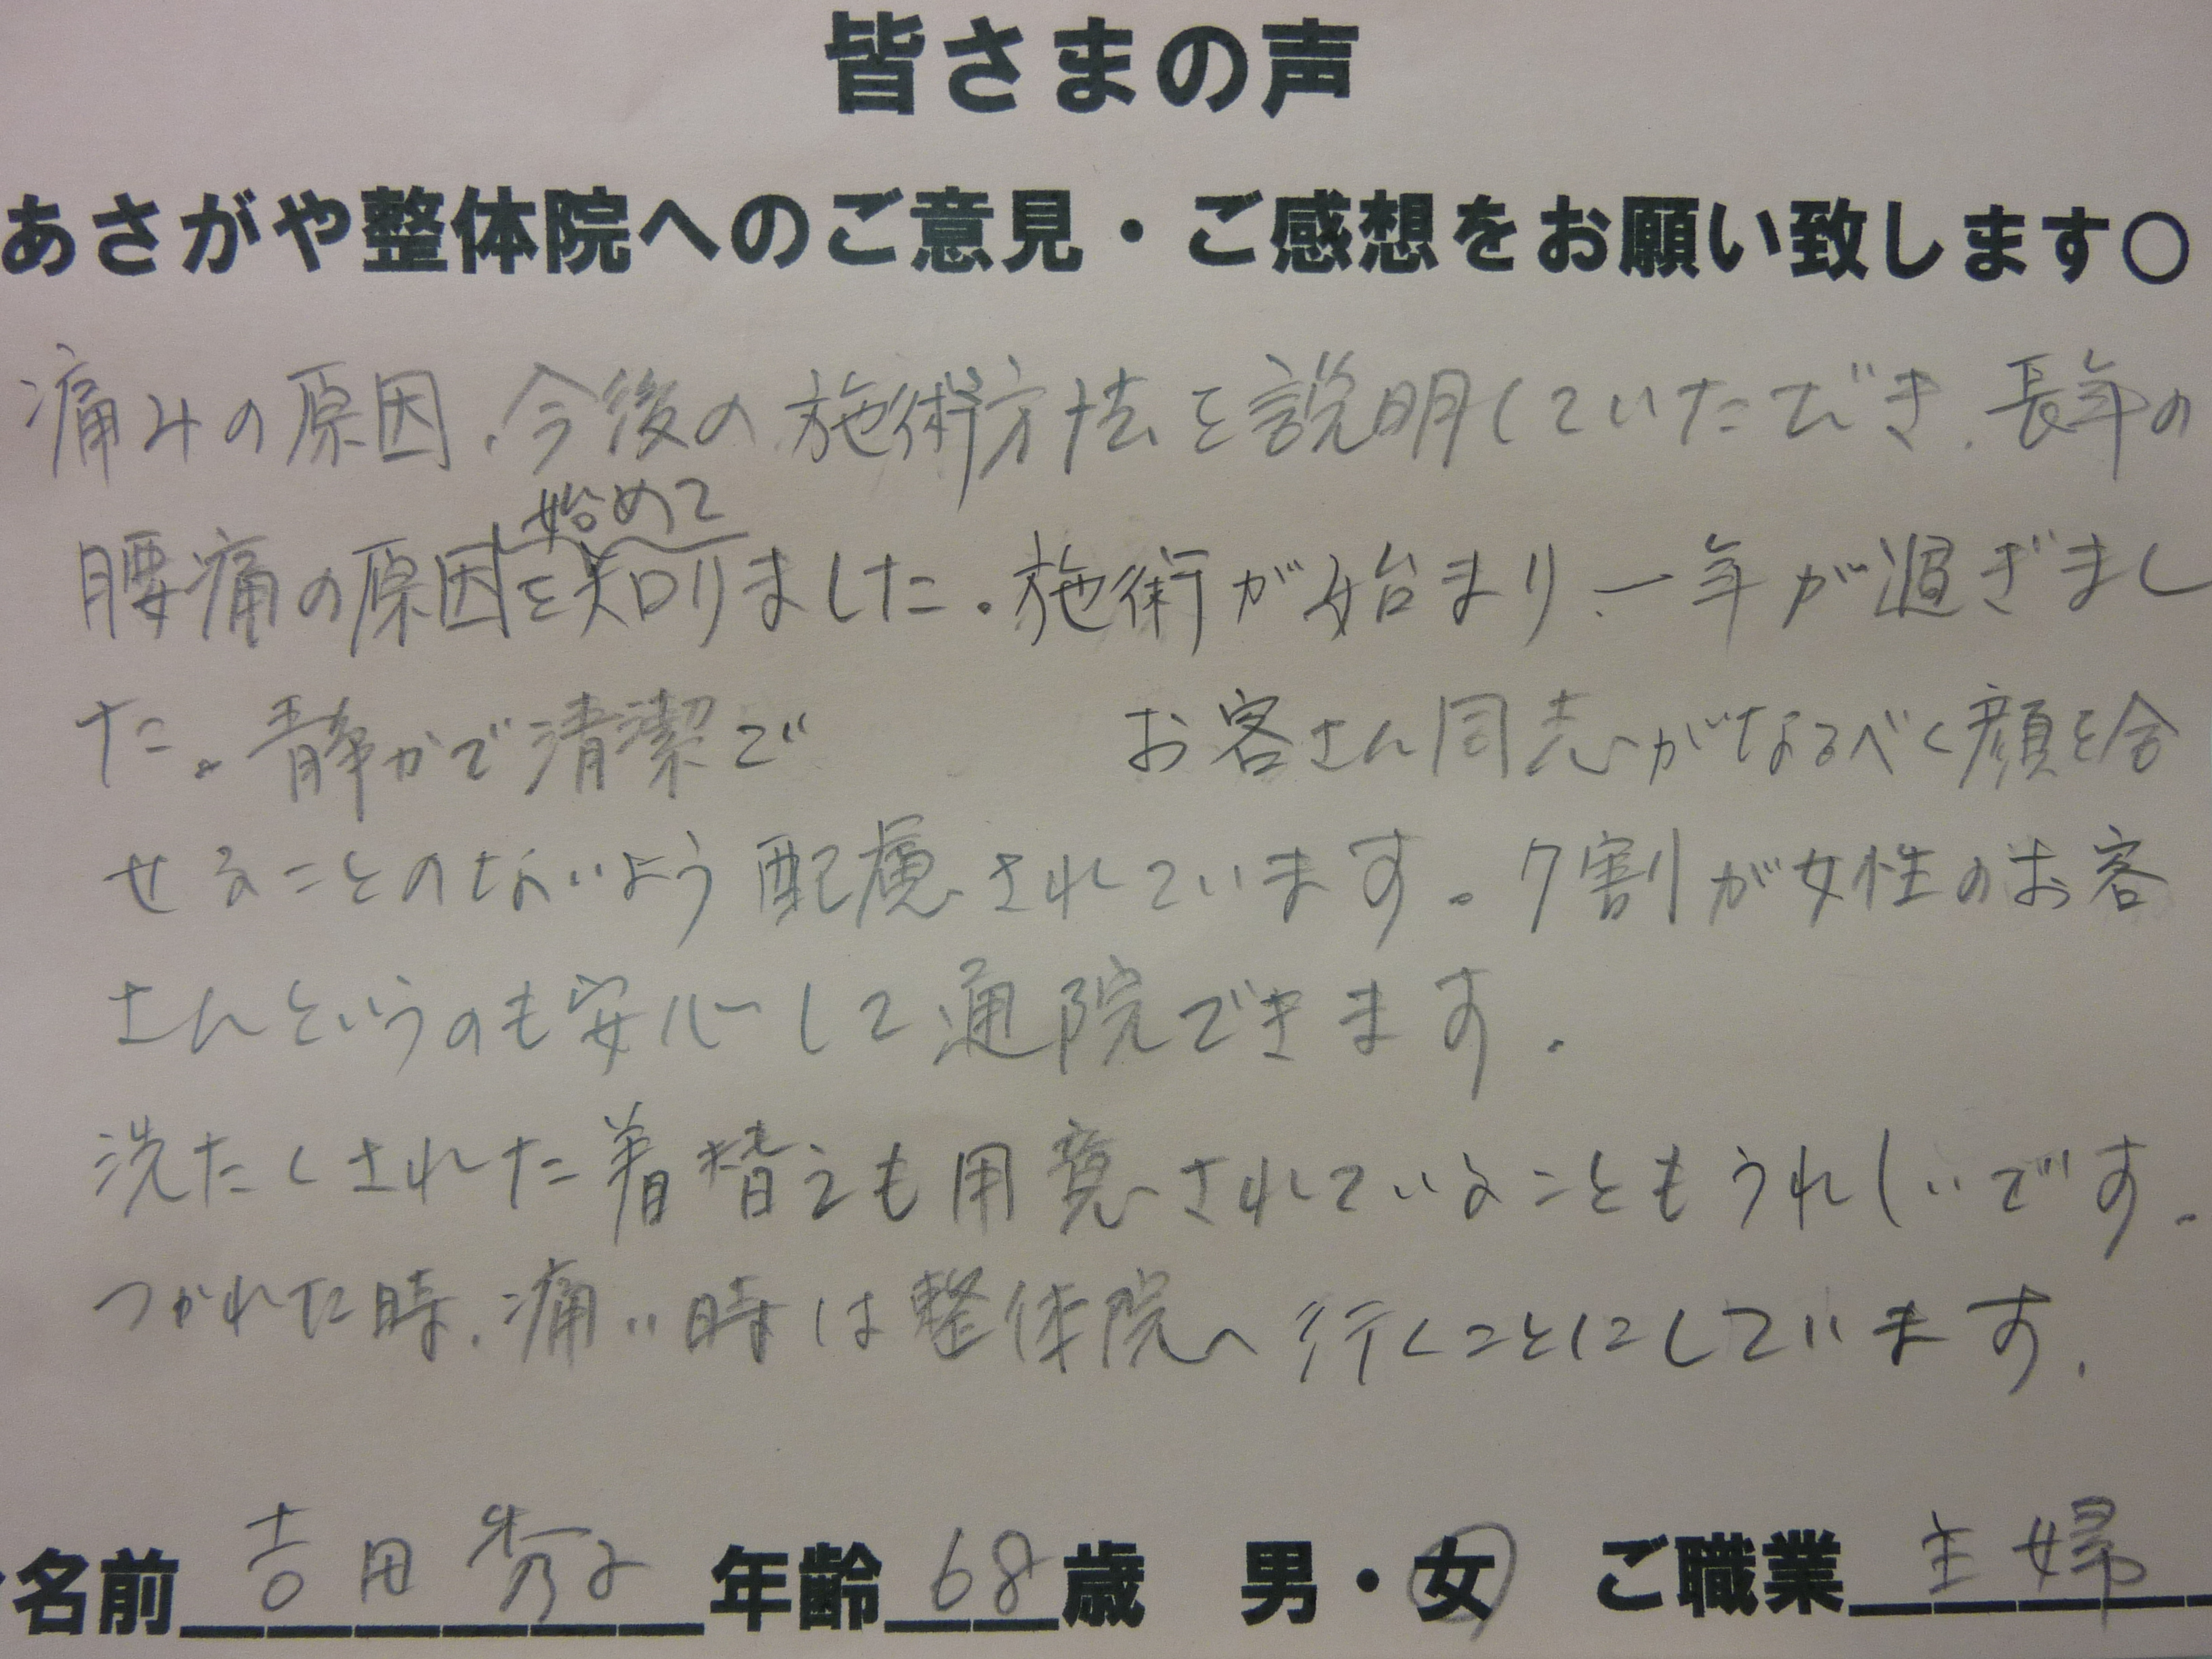 皆さまの声
あさがや整体院へのご意見・ご感想をお願い致します○
痛みの原因、今後の施術方法を説明していただき、長年の
始めて
腰痛の原因を知りました。施術が始まり、一年が過ぎまし
た。静かで清潔で お客さん同志がなるべく顔を合
せることのないよう配慮されています。7割が女性のお客
さんというのも安心して通院できます。
洗たくされた着替えも用意されていることもうれしいです。
つかれた時、痛い時は整体院へ行くことにしています。
名前 吉田秀子 年齢 68 歳 男・女 ご職業 主婦